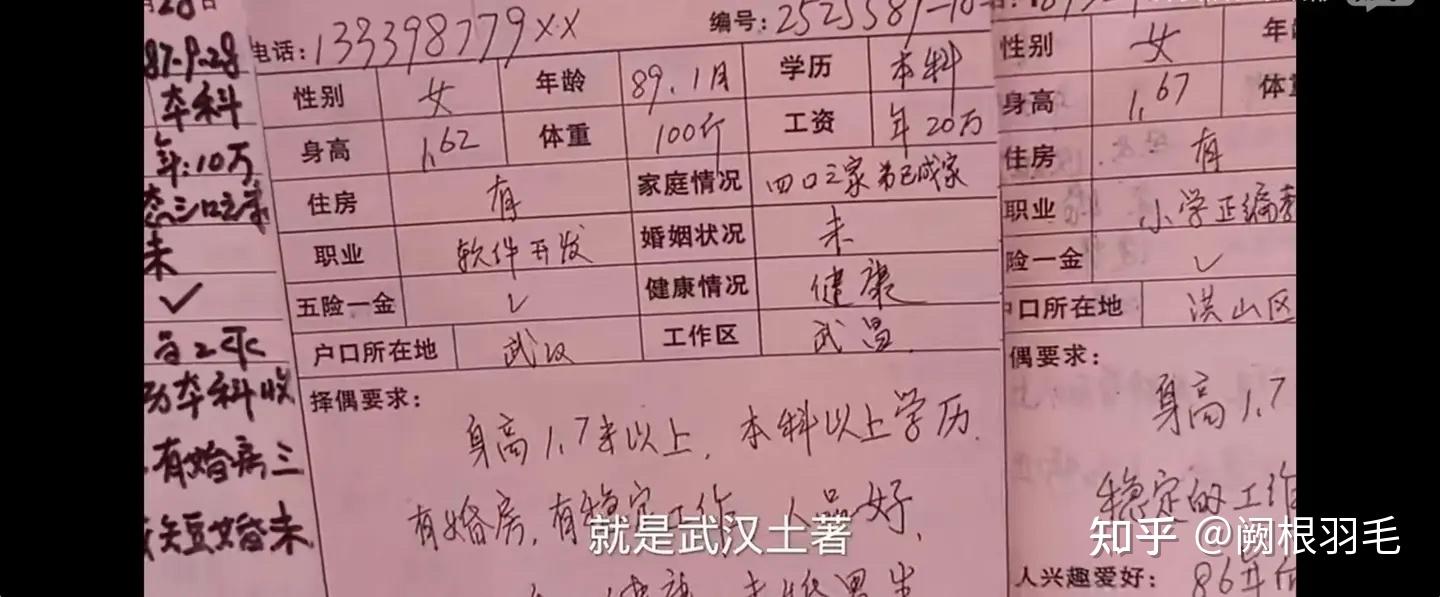 87-9-28
本科
年:10万
未
✓
有婚房三
短婚未
电话:133398779××
编号:2525587-10-
性别 女 年龄 89.1月 学历 本科
身高 1.62 体重 100斤 工资 年20万
住房 有 家庭情况 四口之家 弟已成家
职业 软件开发 婚姻状况 未
五险一金 ✓ 健康情况 健康
户口所在地 武汉 工作区 武昌
择偶要求:
身高1.7米以上,本科以上学历
有婚房,有稳定工作,人品好,
性别 女
身高 1.67
住房 有
职业 小学正编
险一金 ✓
口所在地 洪山区
偶要求:
身高1.7
稳定的工作
人兴趣爱好: 86年
就是武汉土著
知乎 @阙根羽毛